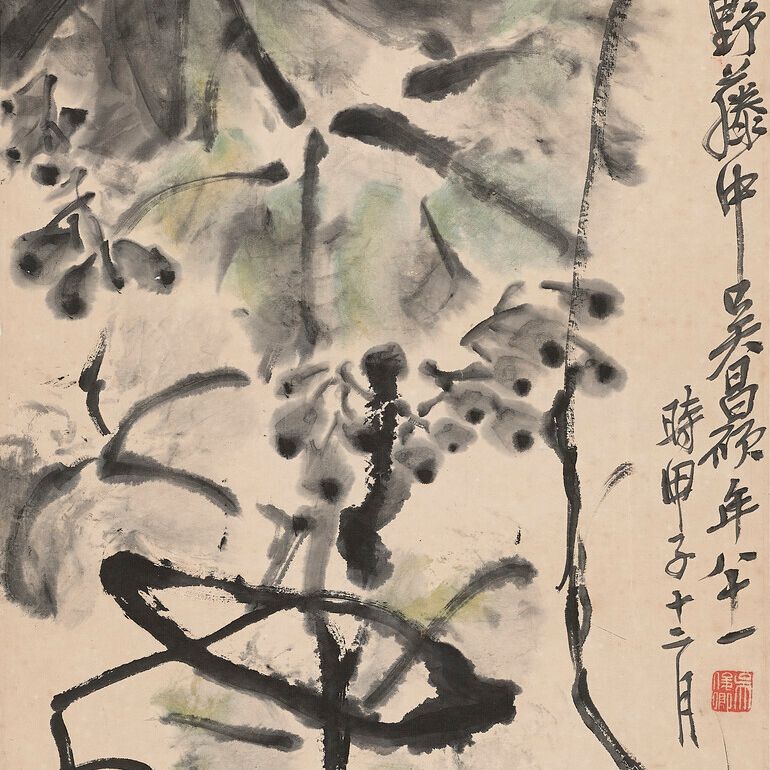 野藤中吳昌碩年八十一
時甲子十二月
吳俊卿